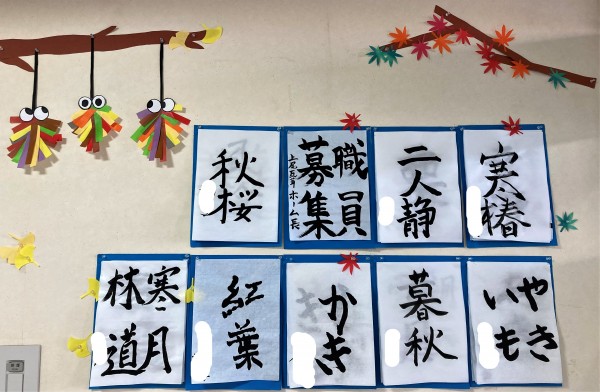 寒椿
二人静
職員
募集
ホーム長
秋桜
やき
いも
暮秋
かき
紅葉
寒月
林道